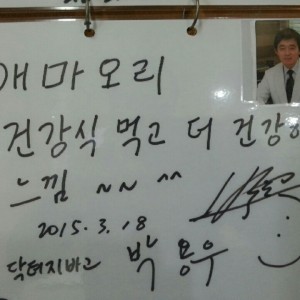 개마오리
건강식 먹고 더 건강
느낌 ~~ ^^
2015. 3. 18
닥터지바고 박용우